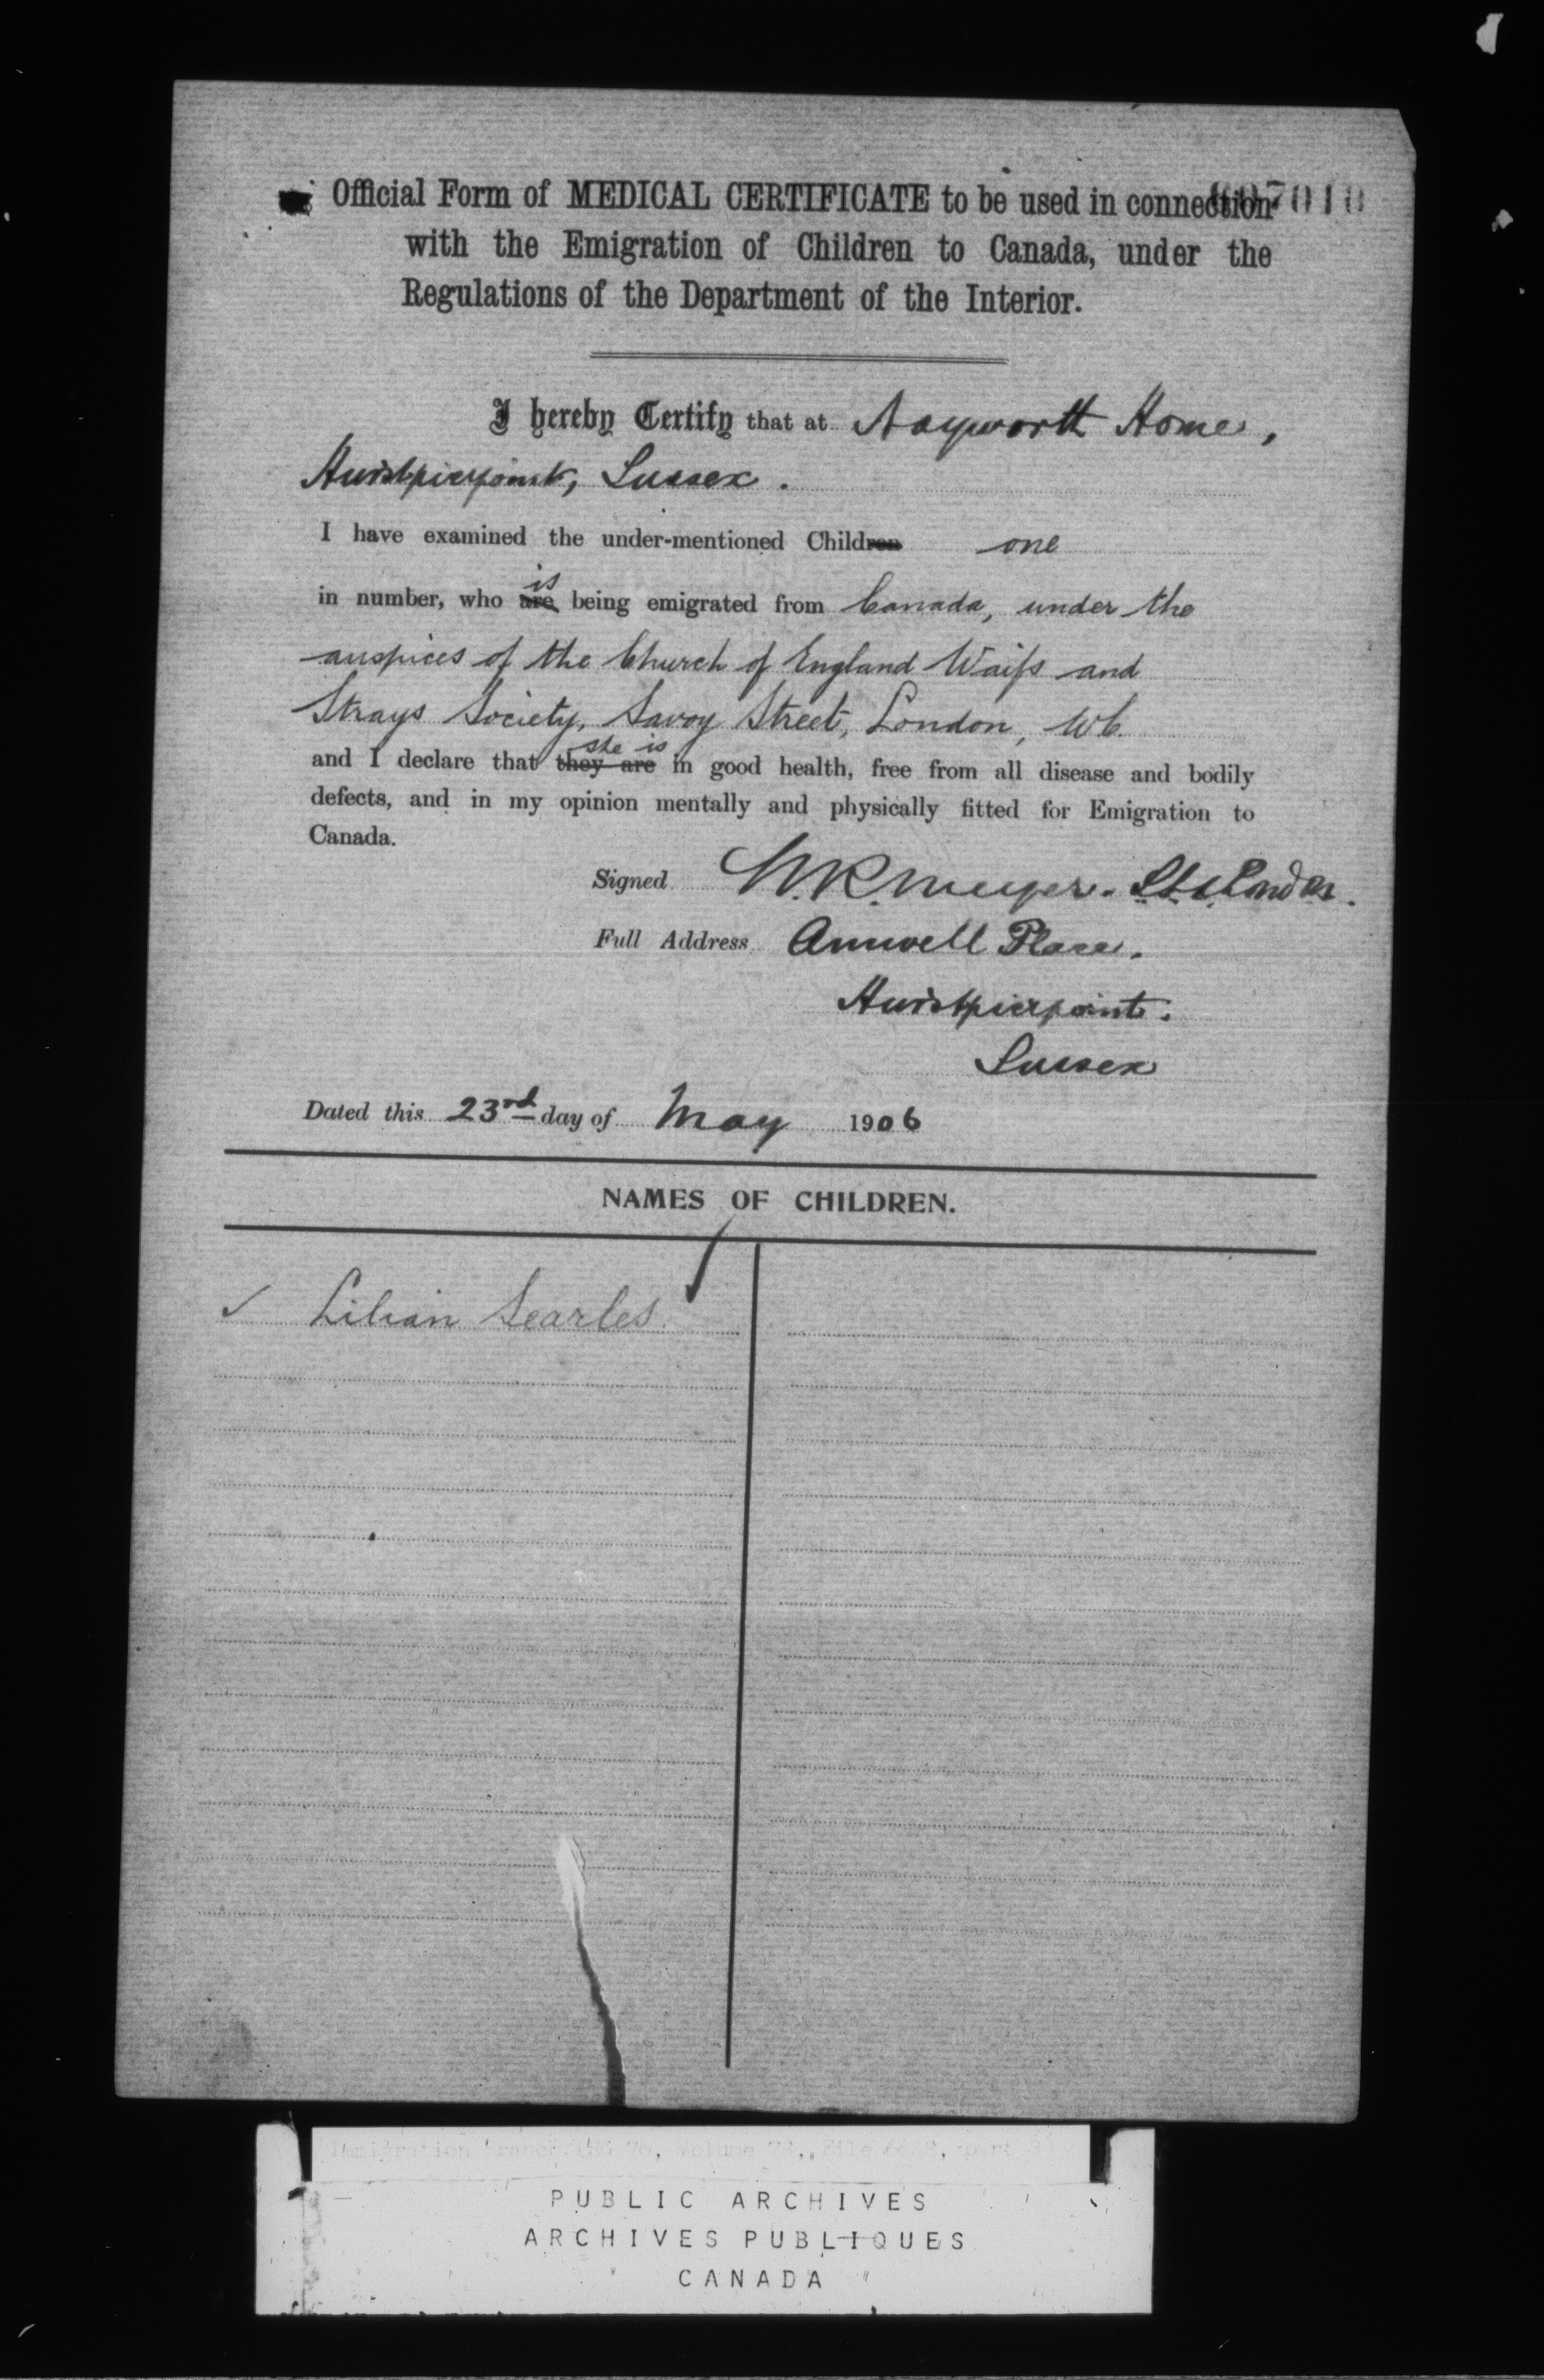 Official Form of MEDICAL CERTIFICATE to be used in connection
with the Emigration of Children to Canada, under the
Regulations of the Department of the Interior.
I hereby Certify that at Nayworth Home,
Hurstpierpoint, Sussex.
I have examined the under-mentioned Children one
is
in number, who are being emigrated from Canada, under the
auspices of the Church of England Waifs and
Strays Society, Savoy Street, London, W.C.
she is
and I declare that they are in good health, free from all disease and bodily
defects, and in my opinion mentally and physically fitted for Emigration to
Canada.
Signed
Full Address Annwell Place.
Hurstpierpoint.
Sussex
Dated this 23rd day of May 1906
NAMES OF CHILDREN.
✓ Lilian Searles
PUBLIC ARCHIVES
ARCHIVES PUBLIQUES
CANADA